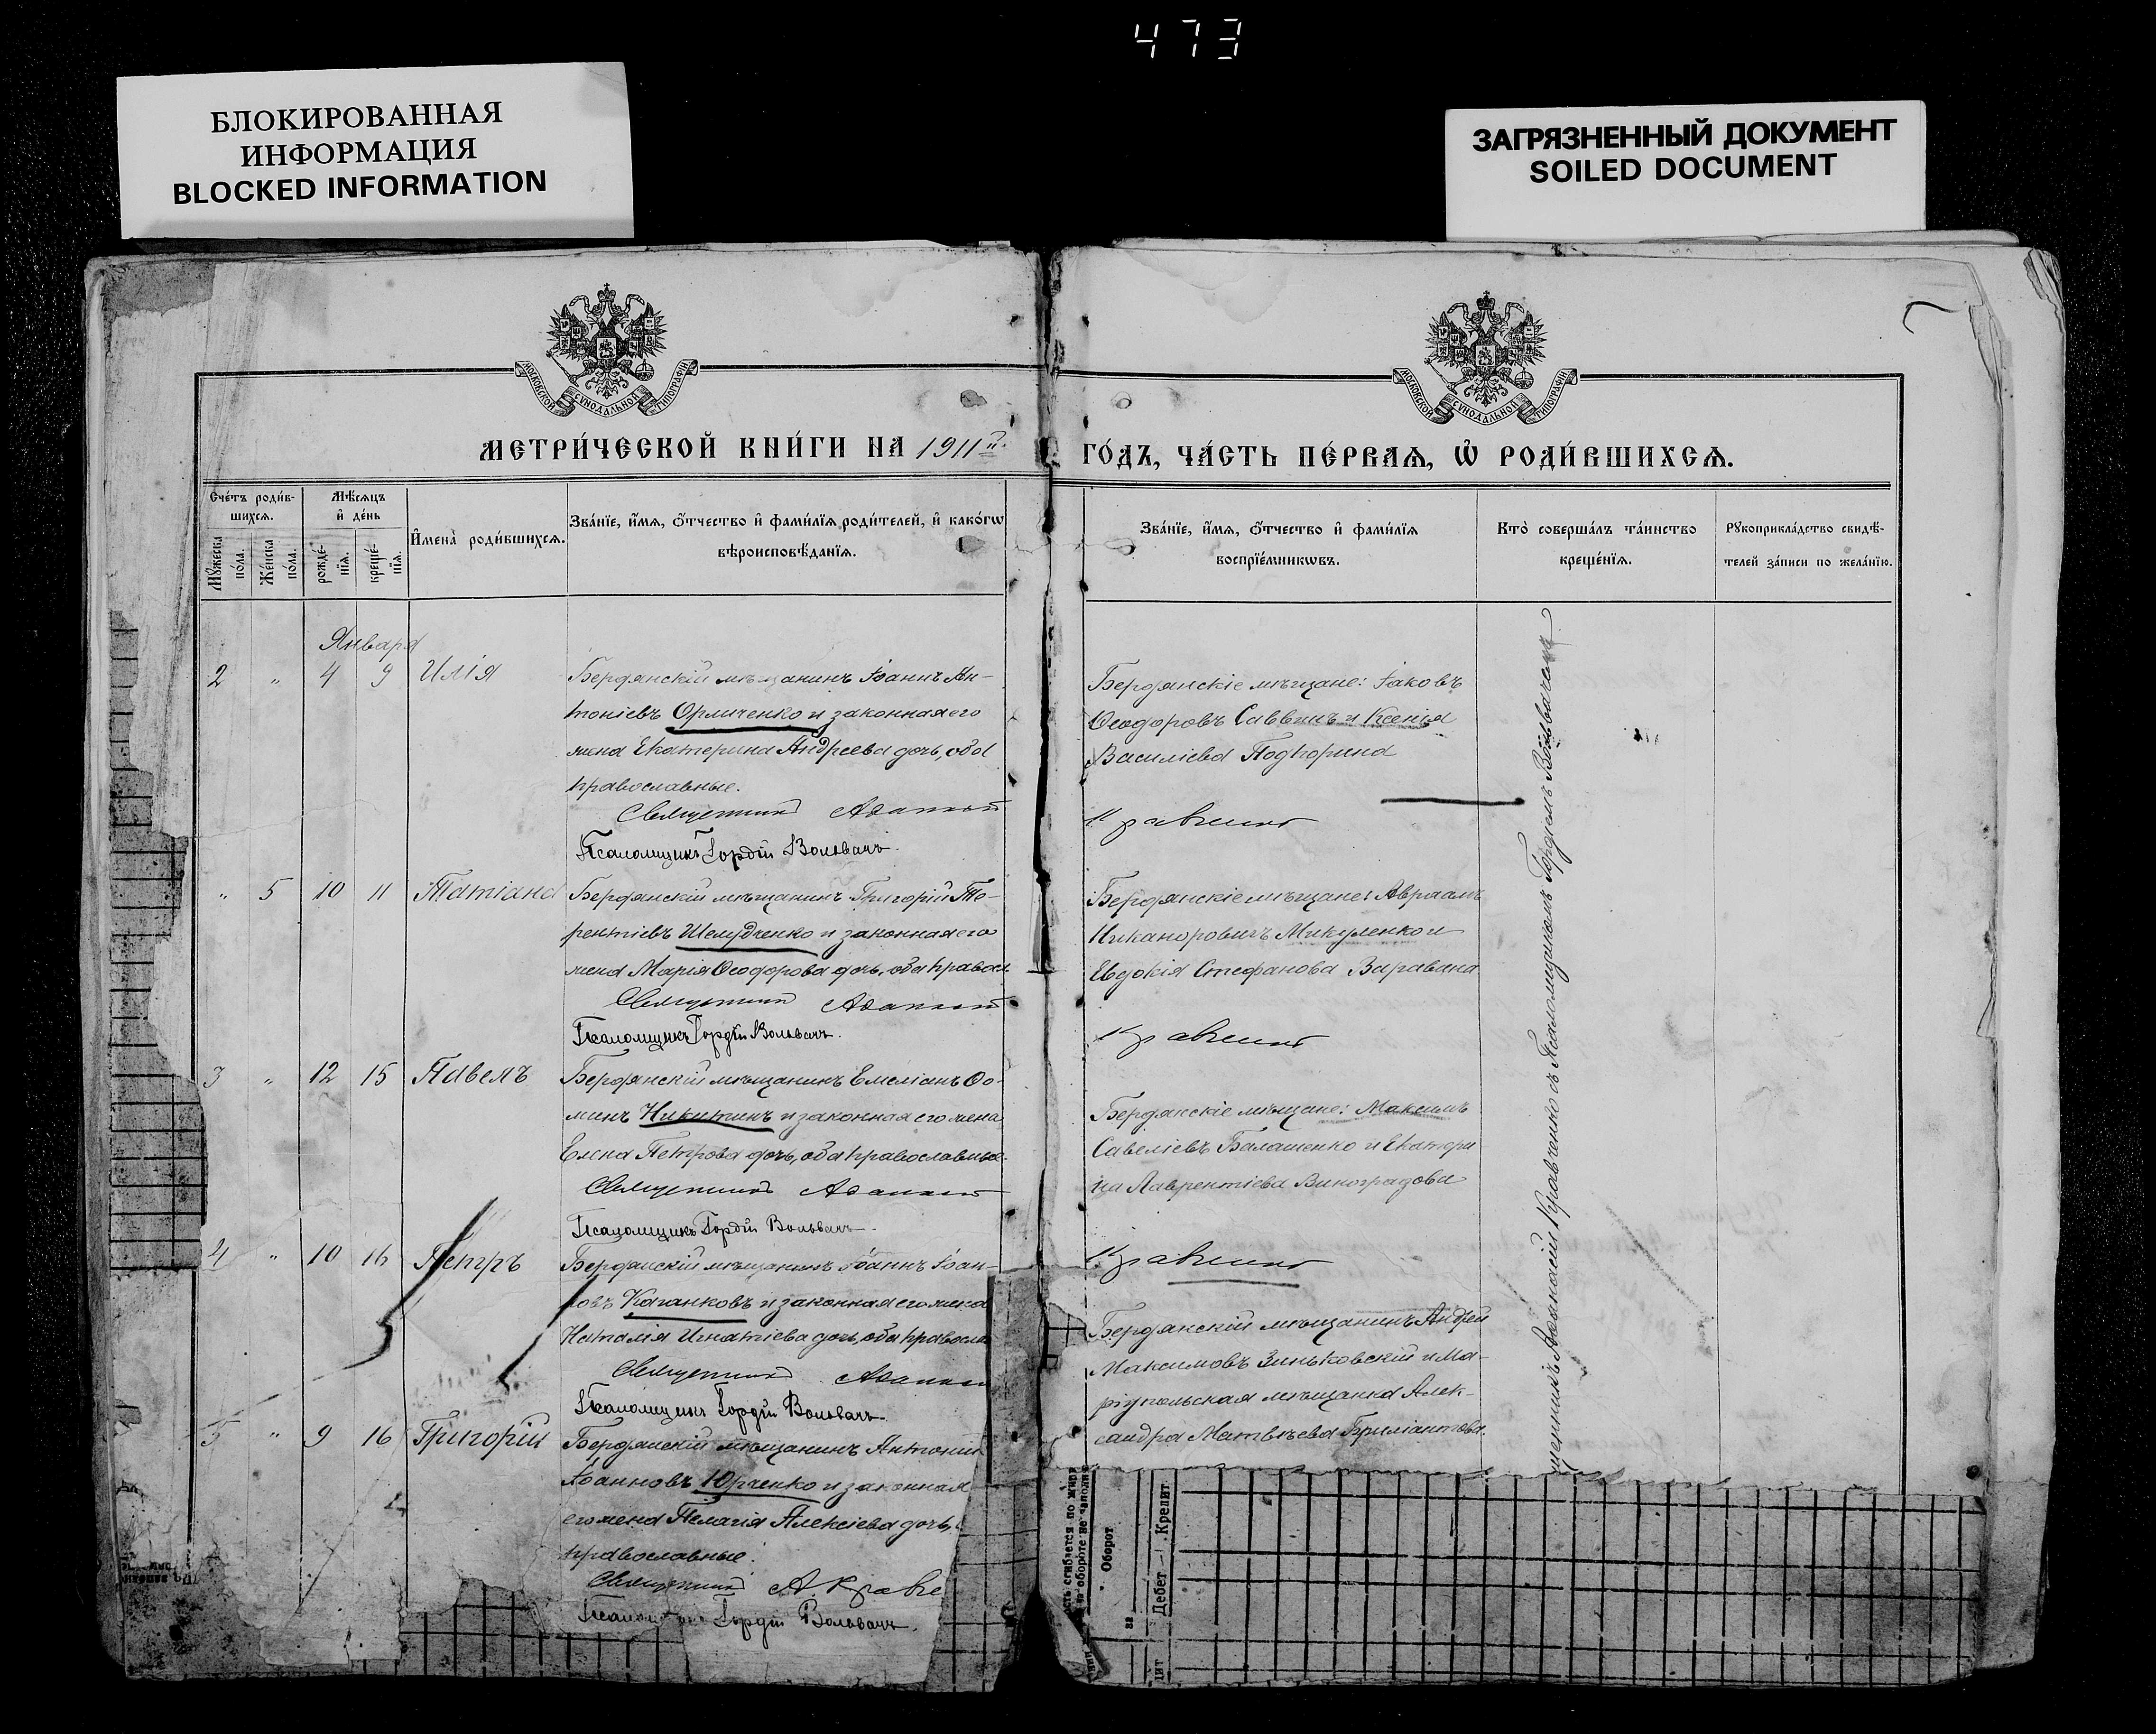 473
БЛОКИРОВАННАЯ
ИНФОРМАЦИЯ
BLOCKED INFORMATION
ЗАГРЯЗНЕННЫЙ ДОКУМЕНТ
SOILED DOCUMENT
МОСКОВСКОЙ СѴНОДАЛЬНОЙ ТИПОГРАФІИ
МОСКОВСКОЙ СѴНОДАЛЬНОЙ ТИПОГРАФІИ
МЕТРИ́ЧЕСКОЙ КНИ́ГИ НА 1911й
ГО́ДЪ, ЧА́СТЬ ПЕ́РВАѦ, Ѡ҆ РОДИ́ВШИХСѦ.
Сче́тъ роди́в-
шихсѧ.
Мѣ́сѧцъ
и҆ де́нь
Мꙋ́жеска
по́ла.
Же́нска
по́ла.
рожде́-
нїѧ.
креще́-
нїѧ.
И҆мена̀ роди́вшихсѧ.
Зва́нїе, и҆́мѧ, ѻ҆́тчество и҆ фами́лїѧ роди́телей, и҆ како́гѡ
вѣроисповѣ́данїѧ.
Зва́нїе, и҆́мѧ, ѻ҆́тчество и҆ фами́лїѧ
воспрїе́мникѡвъ.
Кто̀ соверша́лъ та́инство
креще́нїѧ.
Рꙋкоприкла́дство свидѣ́-
телей за́писи по жела́нїю.
Января
2 " 4 9 Илія
Бердянскій мѣщанинъ Іоаннъ Ан-
тоніевъ Орличенко и законная его
жена Екатерина Андреева дочь, оба
православные.
Священникъ Афанасій
Псаломщикъ Гордій Вольвачъ.
Бердянскіе мѣщане: Іаковъ
Ѳеодоровъ Саввинъ и Ксенія
Василіева Подпорина
Кравченко
" 5 10 11 Татіана
Бердянскій мѣщанинъ Григорій Те-
рентіевъ Шелудченко и законная его
жена Марія Ѳеодорова дочь, оба правосл
Священникъ Афанасій
Псаломщикъ Гордій Вольвачъ.
Бердянскіе мѣщане: Авраамъ
Никаноровичъ Микуленко и
Евдокія Стефанова Варавина
Кравченко
3 " 12 15 Павелъ
Бердянскій мѣщанинъ Емеліанъ Ѳо-
минъ Никитинъ и законная его жена
Елена Петрова дочь, оба православные.
Священникъ Афанасій
Псаломщикъ Гордій Вольвачъ.
Бердянскіе мѣщане: Максимъ
Савеліевъ Балашенко и Екатери
на Лаврентіева Виноградова
Кравченко
4 " 10 16 Петръ
Бердянскій мѣщанинъ Іоаннъ Іоан-
новъ Каганковъ и законная его жена
Наталія Игнатіева дочь, оба правосла
Священникъ Афанасій
Псаломщикъ Гордій Вольвачъ
Бердянскій мѣщанинъ Андрей
Максимовъ Зиньковскій и Ма-
ріупольская мѣщанка Алек-
сандра Матвѣева Бриліантова.
5 " 9 16 Григорій
Бердянскій мѣщанинъ Антоній
Іоанновъ Юрченко и законная
его жена Пелагія Алексіева дочь,
православные.
Священникъ А Кравче
Гордій Вольвачъ.
щенникъ Афанасій Кравченко съ Псаломщикомъ Гордіемъ Вольвачемъ.
Оборот
за
Дебет
Кредит